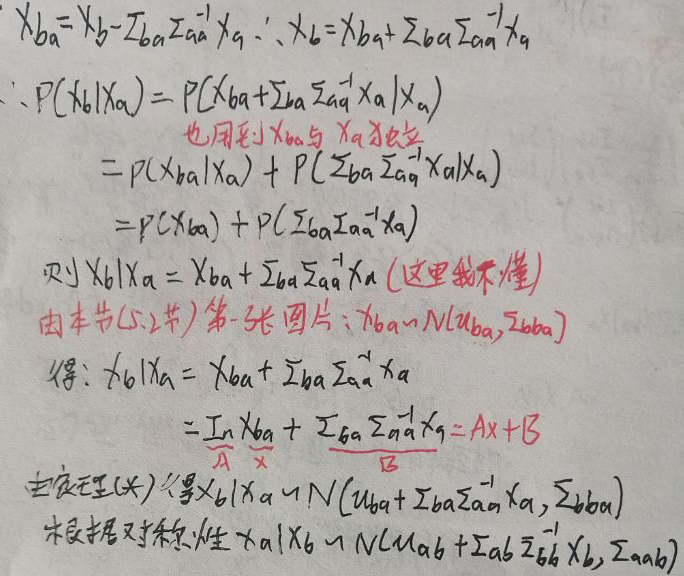 Xba=Xb-ΣbaΣaa⁻¹Xa ∴ Xb=Xba+ΣbaΣaa⁻¹Xa
∴P(Xb|Xa)=P(Xba+ΣbaΣaa⁻¹Xa|Xa)
也用到Xba与Xa独立
=P(Xba|Xa)+P(ΣbaΣaa⁻¹Xa|Xa)
=P(Xba)+P(ΣbaΣaa⁻¹Xa)
则Xb|Xa=Xba+ΣbaΣaa⁻¹Xa(这里我不懂)
由本节(5.2节)第一张图片:Xba~N(uba,Σbba)
得:Xb|Xa=Xba+ΣbaΣaa⁻¹Xa
=In Xba+ΣbaΣaa⁻¹Xa=Ax+B
A x B
由定理(*)得Xb|Xa~N(uba+ΣbaΣaa⁻¹Xa,Σbba)
根据对称性Xa|Xb~N(uab+ΣabΣbb⁻¹Xb,Σaab)